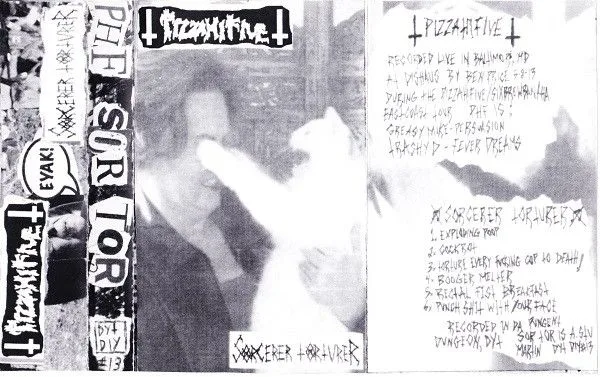 SORCERER TORTURER
EYAK!
PIZZAHIFIVE
PHF SOR TOR
DYT
DIY
#13
PIZZAHIFIVE
SORCERER TORTURER
PIZZAHIFIVE
RECORDED LIVE IN BALTIMORE MD
BY BEN PRICE 5-8-13
DURING THE PIZZAHIFIVE/
EASTCOAST TOUR PHF IS:
GREASY MIKE - PERCUSSION
TRASHY D - FEVER DREAMS
SORCERER TORTURER
1. EXPLODING POOP
2. COCKROT
3. TORTURE EVERY FUCKING COP TO DEATH!
4. BOOGER MELTER
5. RECTAL FIST BREAKFAST
6. PUNCH SHIT WITH YOUR FACE
RECORDED IN DA PUNGENT
DUNGEON, DYT SOR TOR IS A SLV
MARTIN DYT DIY #13